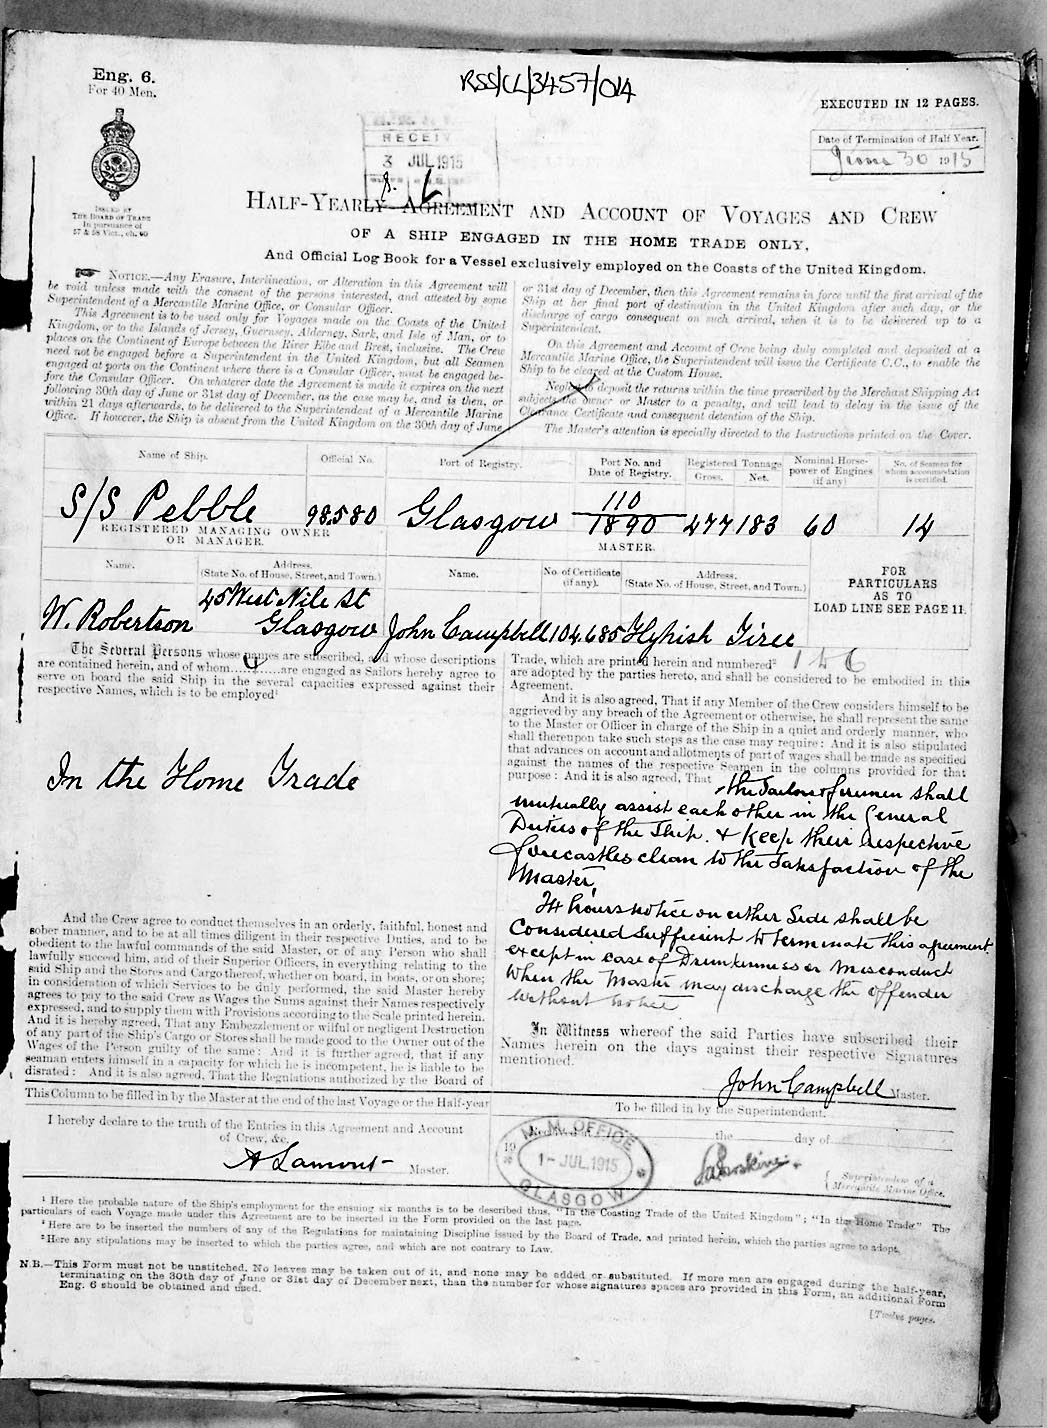 Eng. 6.
For 40 Men.
RSS/CL/3457/014
EXECUTED IN 12 PAGES.
Date of Termination of Half Year.
June 30 1915
RECEIV
3 JUL 1915
ISSUED BY
THE BOARD OF TRADE
In pursuance of
57 & 58 Vict., ch. 60
HALF-YEARLY AGREEMENT AND ACCOUNT OF VOYAGES AND CREW
OF A SHIP ENGAGED IN THE HOME TRADE ONLY,
And Official Log Book for a Vessel exclusively employed on the Coasts of the United Kingdom.
NOTICE.—Any Erasure, Interlineation, or Alteration in this Agreement will
be void unless made with the consent of the persons interested, and attested by some
Superintendent of a Mercantile Marine Office, or Consular Officer.
This Agreement is to be used only for Voyages made on the Coasts of the United
Kingdom, or to the Islands of Jersey, Guernsey, Alderney, Sark, and Isle of Man, or to
places on the Continent of Europe between the River Elbe and Brest, inclusive. The Crew
need not be engaged before a Superintendent in the United Kingdom, but all Seamen
engaged at ports on the Continent where there is a Consular Officer, must be engaged be-
fore the Consular Officer. On whatever date the Agreement is made it expires on the next
following 30th day of June or 31st day of December, as the case may be, and is then, or
within 21 days afterwards, to be delivered to the Superintendent of a Mercantile Marine
Office. If however, the Ship is absent from the United Kingdom on the 30th day of June
or 31st day of December, then this Agreement remains in force until the first arrival of the
Ship at her final port of destination in the United Kingdom after such day, or the
discharge of cargo consequent on such arrival, when it is to be delivered up to a
Superintendent.
On this Agreement and Account of Crew being duly completed and deposited at a
Mercantile Marine Office, the Superintendent will issue the Certificate C.C., to enable the
Ship to be cleared at the Custom House.
Neglect to deposit the returns within the time prescribed by the Merchant Shipping Act
subjects the owner or Master to a penalty, and will lead to delay in the issue of the
Clearance Certificate and consequent detention of the Ship.
The Master's attention is specially directed to the Instructions printed on the Cover.
Name of Ship. Official No. Port of Registry. Port No. and Date of Registry. Registered Tonnage Gross. Net. Nominal Horse-power of Engines (if any) No. of Seamen for whom accommodation is certified.
S/S Pebble 98,580 Glasgow 110/1890 477 183 60 14
REGISTERED MANAGING OWNER
OR MANAGER.
MASTER.
Name. Address. (State No. of House, Street, and Town.) Name. No. of Certificate (if any). Address. (State No. of House, Street, and Town.)
FOR
PARTICULARS
AS TO
LOAD LINE SEE PAGE 11.
45 West Nile St
W. Robertson Glasgow John Campbell 104,685 Hynish Tiree
The Several Persons whose names are subscribed, and whose descriptions
are contained herein, and of whom are engaged as Sailors hereby agree to
serve on board the said Ship in the several capacities expressed against their
respective Names, which is to be employed¹
In the Home Trade
And the Crew agree to conduct themselves in an orderly, faithful, honest and
sober manner, and to be at all times diligent in their respective Duties, and to be
obedient to the lawful commands of the said Master, or of any Person who shall
lawfully succeed him, and of their Superior Officers, in everything relating to the
said Ship and the Stores and Cargo thereof, whether on board, in boats, or on shore;
in consideration of which Services to be duly performed, the said Master hereby
agrees to pay to the said Crew as Wages the Sums against their Names respectively
expressed, and to supply them with Provisions according to the Scale printed herein.
And it is hereby agreed, That any Embezzlement or wilful or negligent Destruction
of any part of the Ship's Cargo or Stores shall be made good to the Owner out of the
Wages of the Person guilty of the same: And it is further agreed, that if any
seaman enters himself in a capacity for which he is incompetent, he is liable to be
disrated: And it is also agreed, That the Regulations authorized by the Board of
Trade, which are printed herein and numbered² 1 to 6
are adopted by the parties hereto, and shall be considered to be embodied in this
Agreement.
And it is also agreed, That if any Member of the Crew considers himself to be
aggrieved by any breach of the Agreement or otherwise, he shall represent the same
to the Master or Officer in charge of the Ship in a quiet and orderly manner, who
shall thereupon take such steps as the case may require: And it is also stipulated
that advances on account and allotments of part of wages shall be made as specified
against the names of the respective Seamen in the columns provided for that
purpose: And it is also agreed, That ³ the Sailors & firemen shall
mutually assist each other in the General
Duties of the Ship. & Keep their respective
forecastles clean to the Satisfaction of the
Master,
24 hours notice on either Side shall be
Considered Sufficient to terminate this agreement
except in case of Drunkenness or Misconduct
When the Master may discharge the offender
without notice
In Witness whereof the said Parties have subscribed their
Names herein on the days against their respective Signatures
mentioned.
John Campbell Master.
This Column to be filled in by the Master at the end of the last Voyage or the Half-year
I hereby declare to the truth of the Entries in this Agreement and Account
of Crew, &c.
A Lamont Master.
To be filled in by the Superintendent.
the day of
19
M. M. OFFICE
1- JUL.1915
GLASGOW
Superintendent of a
Mercantile Marine Office.
¹ Here the probable nature of the Ship's employment for the ensuing six months is to be described thus, "In the Coasting Trade of the United Kingdom"; "In the Home Trade." The
particulars of each Voyage made under this Agreement are to be inserted in the Form provided on the last page.
² Here are to be inserted the numbers of any of the Regulations for maintaining Discipline issued by the Board of Trade, and printed herein, which the parties agree to adopt.
³ Here any stipulations may be inserted to which the parties agree, and which are not contrary to Law.
N.B.—This Form must not be unstitched. No leaves may be taken out of it, and none may be added or substituted. If more men are engaged during the half-year,
terminating on the 30th day of June or 31st day of December next, than the number for whose signatures spaces are provided in this Form, an additional Form
Eng. 6 should be obtained and used.
[Twelve pages.